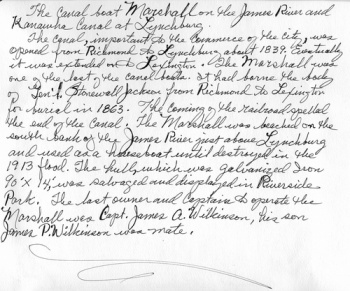 The Canal boat Marshall on the James River and
Kanawha Canal at Lynchburg.
The Canal, important to the commerce of the city, was
opened from Richmond to Lynchburg about 1839. Eventually
it was extended on to Lexington. The Marshall was
one of the last of the canal boats. It had borne the body
of Gen'l Stonewall Jackson from Richmond to Lexington
for burial in 1863. The coming of the railroad spelled
the end of the Canal. The Marshall was beached on the
south bank of the James River just above Lynchburg
and used as a houseboat until destroyed in the
1913 flood. The hull, which was galvanized Iron
90 x 14, was salvaged and displayed in Riverside
Park. The last owner and Captain to operate the
Marshall was Capt. James A. Wilkinson, his son
James P. Wilkinson was mate.